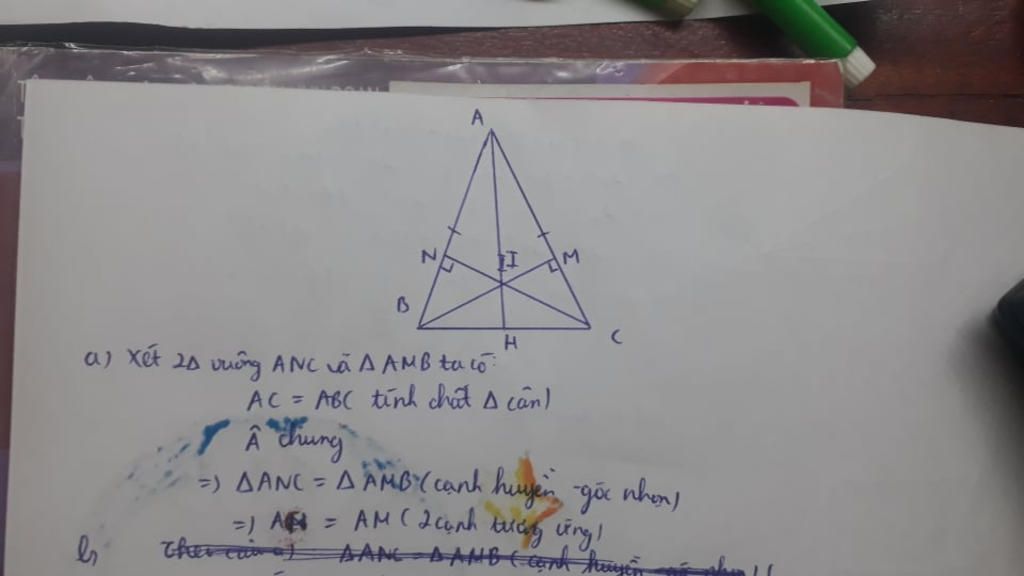 A
N
I
M
B
H
C
a) Xét 2Δ vuông ANC và Δ AMB ta có:
AC = AB( tính chất Δ cân)
Â chung
=) ΔANC = Δ AMB (cạnh huyền -góc nhọn)
=) = AM ( 2 cạnh tương ứng)
b, ΔANC = ΔAMB (cạnh huyền